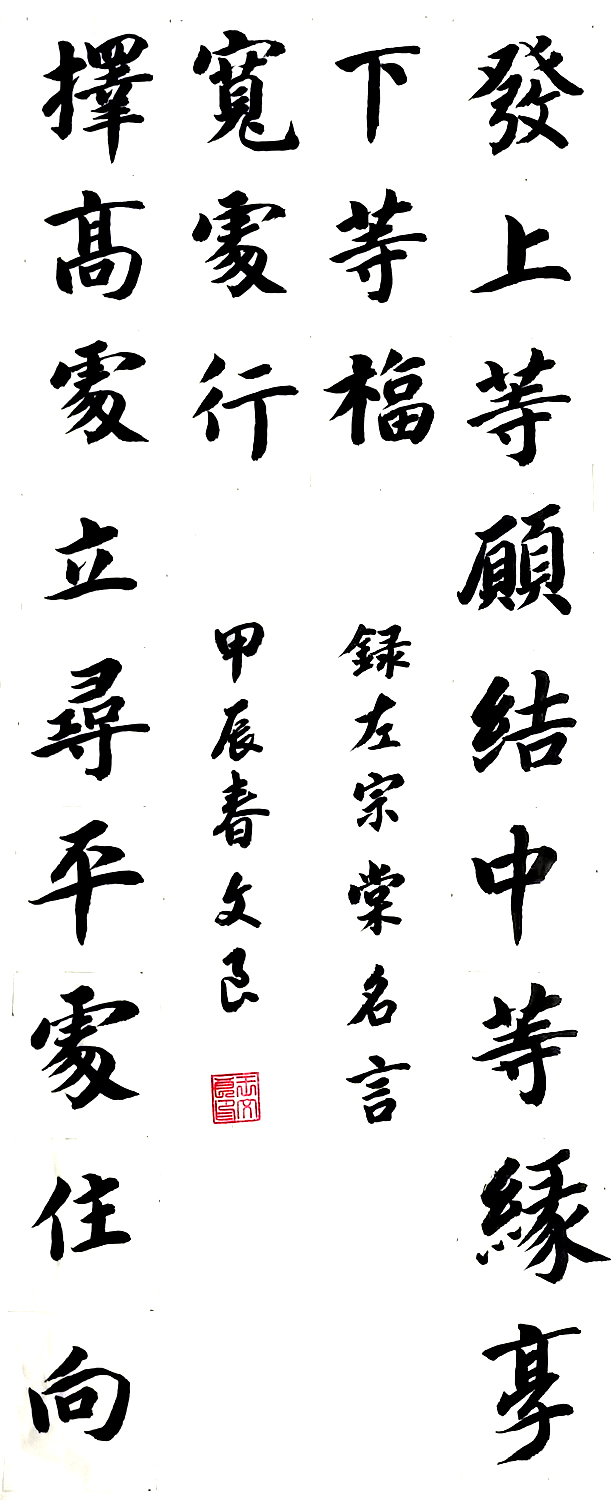 發上等願結中等緣享
下等福
擇高處立尋平處住向
寬處行
録左宗棠名言
甲辰春文良
王文良印